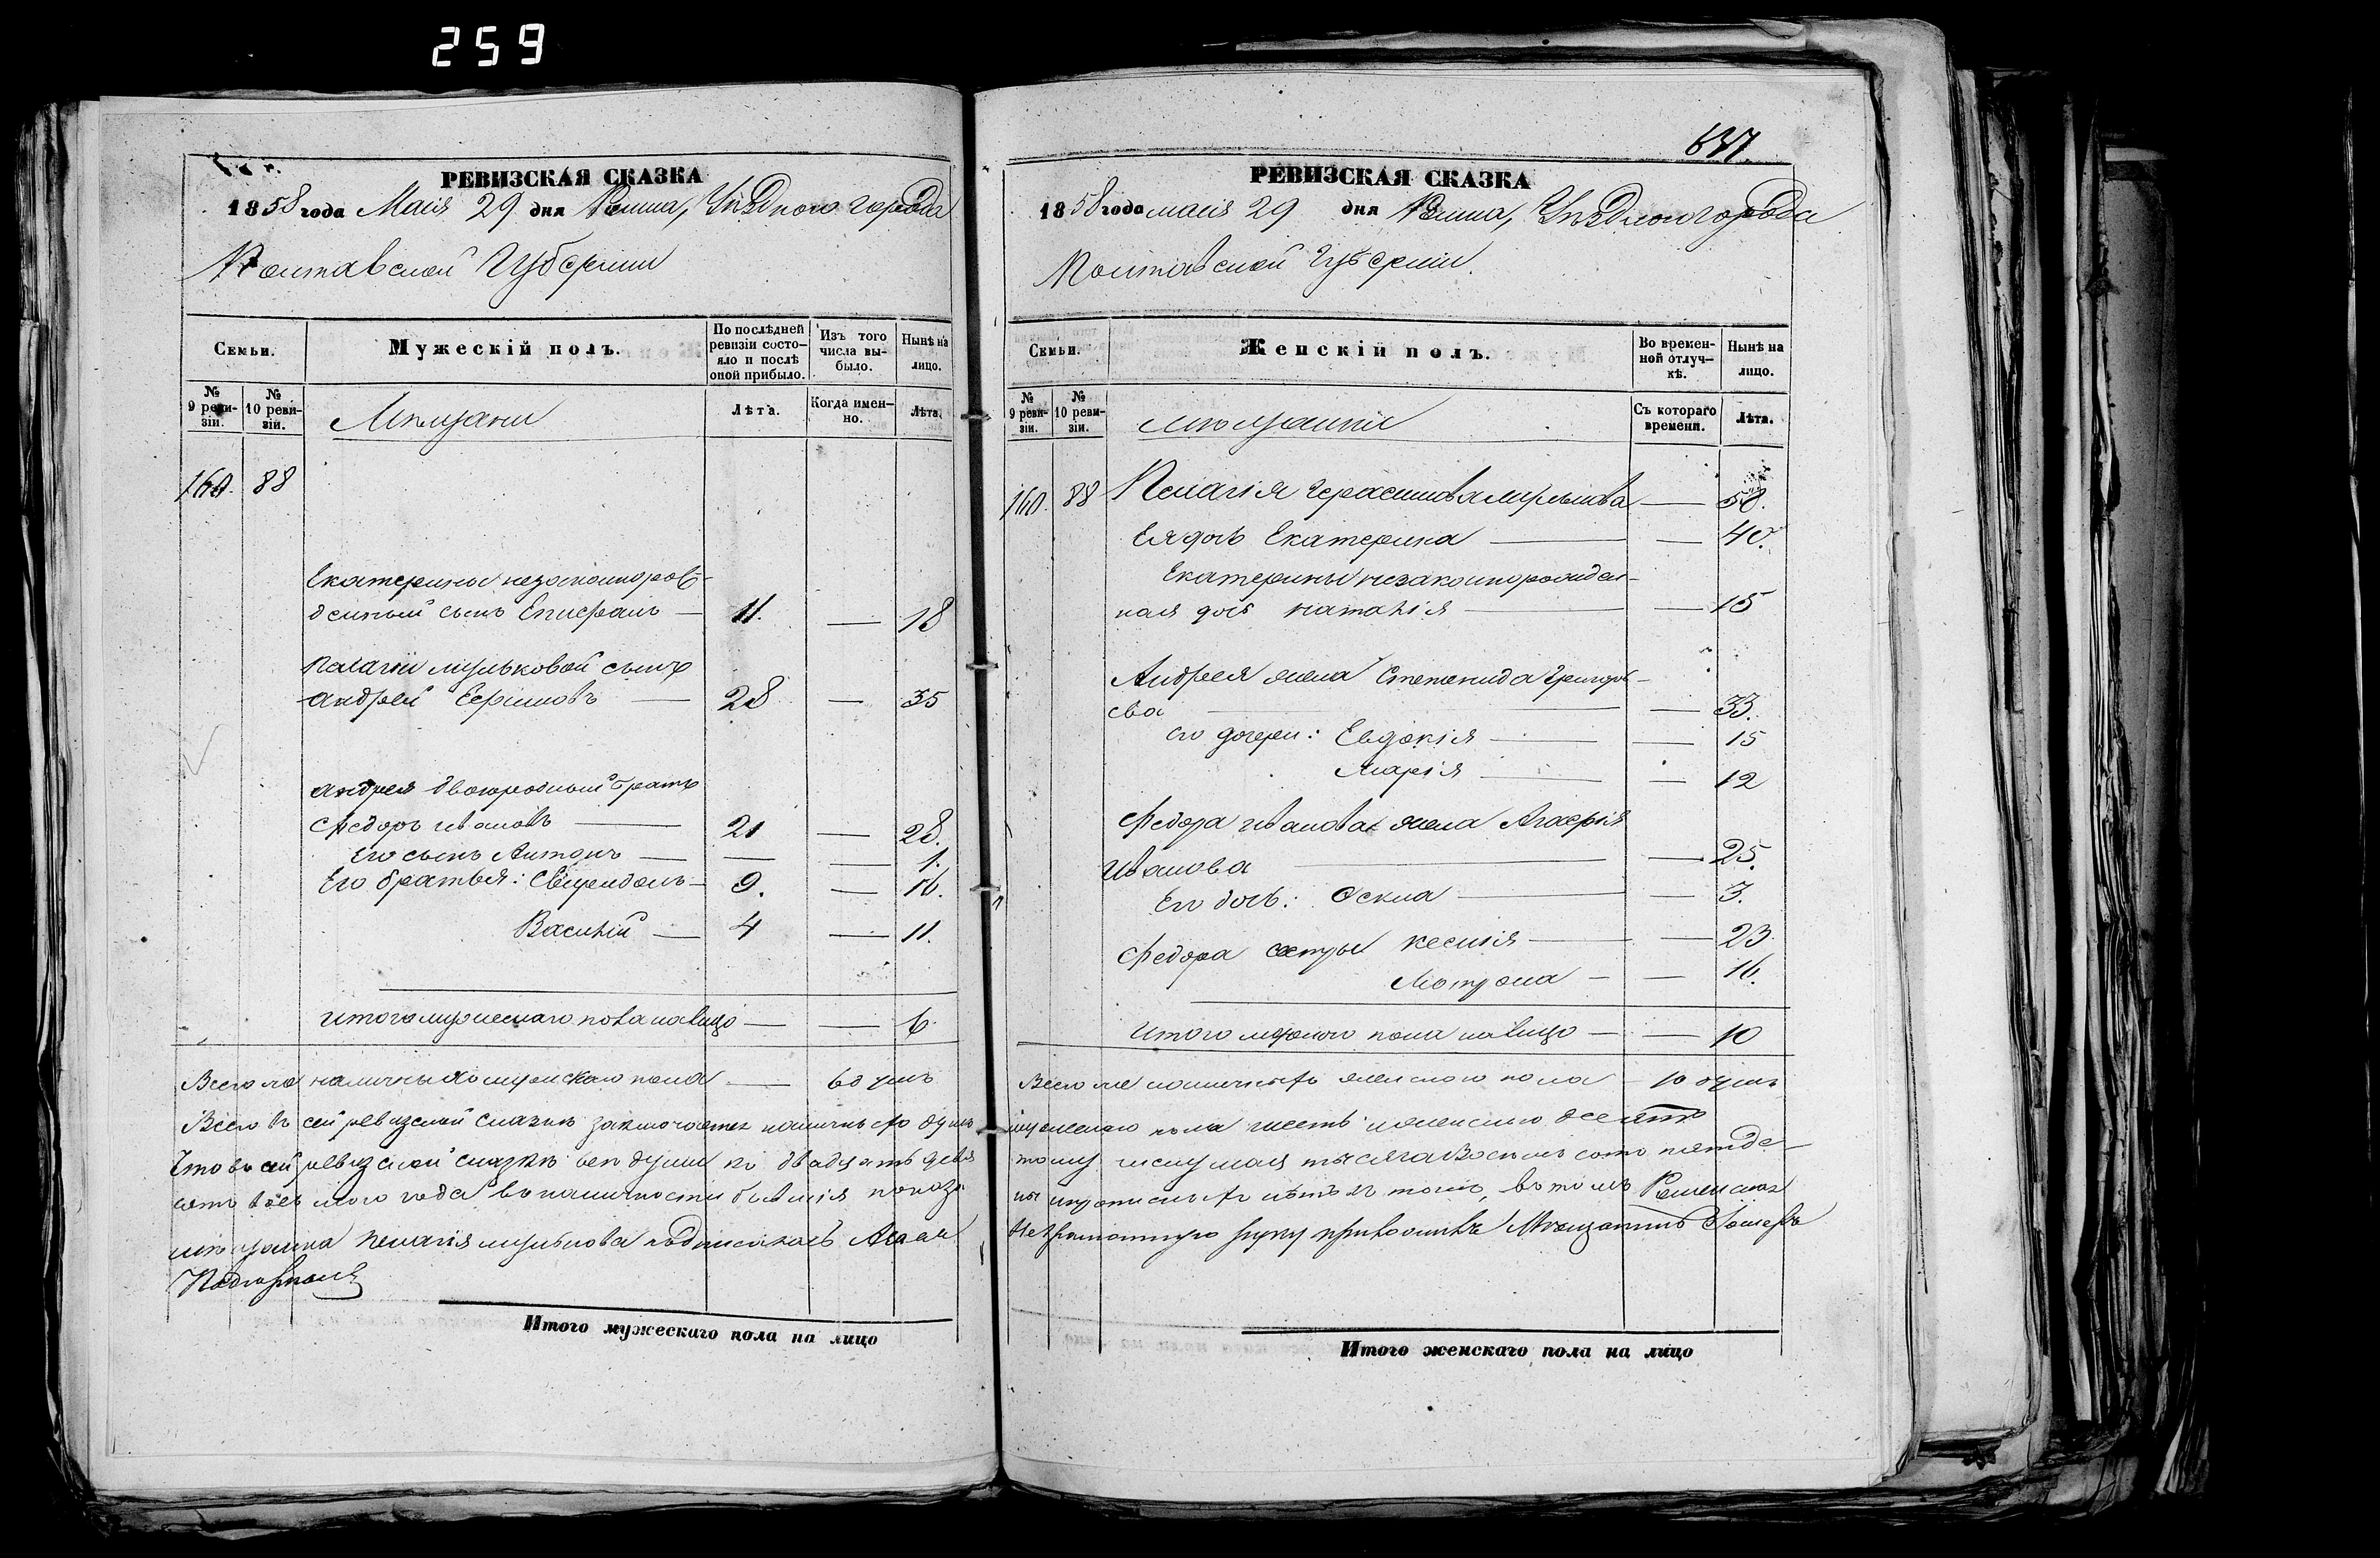 259
РЕВИЗСКАЯ СКАЗКА
1858 года Маія 29 дня Ромна, Уѣзднаго города
Полтавской Губерніи
Семьи.
Мужескій полъ.
По послѣдней ревизіи состояло и послѣ оной прибыло.
Изъ того числа выбыло.
Нынѣ на лицо.
№ 9 ревизіи.
№ 10 ревизіи.
Мѣщани
Лѣта.
Когда именно.
Лѣта.
160. 88
Екатерины незаконорож-
денный сынъ Епифанъ — 11. — 18
Палагіи Мульковой сынъ
Андрей Ефимовъ — 28 — 35
Андрея двоюродный братъ
Федоръ Ивановъ — 21 — 28.
Его сынъ Антонъ — — — 1.
Его братья: Свиридонъ — 9. — 16.
Василій — 4 — 11.
Итого мужескаго пола налицо — — 6
Всего же наличныхъ мужскаго пола — 6 душъ
Всего въ сей ревизской сказкѣ заключается наличныхъ душъ
Что въ сей ревизской сказкѣ всѣ души по двадцать девя
мого года въ наличности бывшія показа
мѣщанка Пелагія Мулькова
Итого мужескаго пола на лицо
637.
РЕВИЗСКАЯ СКАЗКА
1858 года маія 29 дня Ромна, Уѣзднаго города
Полтавской Губерніи.
Семьи.
Женскій полъ.
Во временной отлучкѣ.
Нынѣ на лицо.
№ 9 ревизіи.
№ 10 ревизіи.
мѣщанки
Съ котораго времени.
Лѣта.
160. 88 Пелагія Герасимова Мулькова — 58.
Ея дочь Екатерина — — 40.
Екатерины незаконорожден-
ная дочь Наталія — — 15
Андрея жена Степанида Григорь-
ева — — 33.
его дочери: Евдокія — — 15
Марія — — 12
Федора Иванова жена Агафія
Иванова — — 25.
Его дочь: — — 3.
Федора сестры Ксенія — — 23
Мотрона — — 16.
Итого женского пола налицо — — 10
Всего же наличныхъ женского пола — 10 душъ
мужескаго пола шесть женского десять
тому числу мая тысяча восемь сотъ пятде-
въ томъ Роменская
руку приложилъ Мѣщанинъ
Итого женскаго пола на лицо